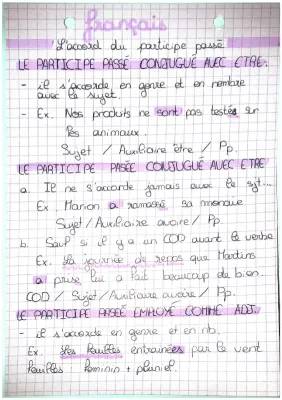 français
L'accord du participe passé
LE PARTICIPE PASSÉ CONJUGUÉ AVEC ETRE:
- il s'accorde en genre et en nombre
avec le sujet
- Ex. Nos produits ne sont pas testés sur
les animaux.
Sujet / Auxiliaire être / Pp.
LE PARTICIPE PASÉE CONJUGUÉ AVEC ETRE
a. Il ne s'accorde jamais avec le sjt...
Ex. Marion a ramassé sa monque
Sujet / Auxiliaire avoire / Pp.
b. Sauf si il y a un COD avant le verbe
Ex. La journée de repos que Martins
a prise, lui a fait beaucoup de bien.
COD / Sujet / Auxiliaire avoire / Pp.
LE PARTICIPE PASSÉ EMPLOYÉ COMME ADJ.
- il s'accorde en genre et en nb.
Ex. Les feuilles entrainées par le vent
feuilles : feminin + pluriel.